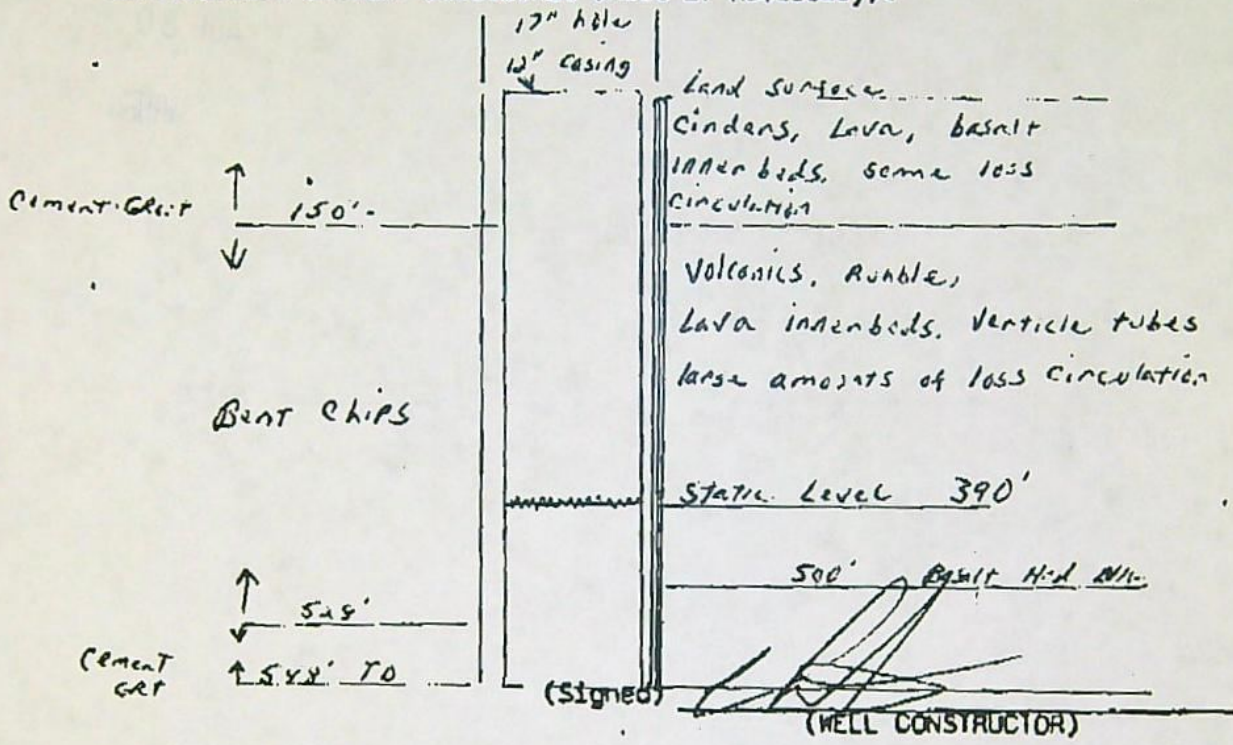 17" hole
12" casing
Land surface
Cinders, Lava, basalt
inner beds, some loss
circulation
Cement
150'
Volcanics, Rubble,
Lava innerbeds. Verticle tubes
large amounts of loss circulation
Bent Chips
Static Level 390'
500' Basalt
528'
Cement
GRT
548' TD
(Signed)
(WELL CONSTRUCTOR)